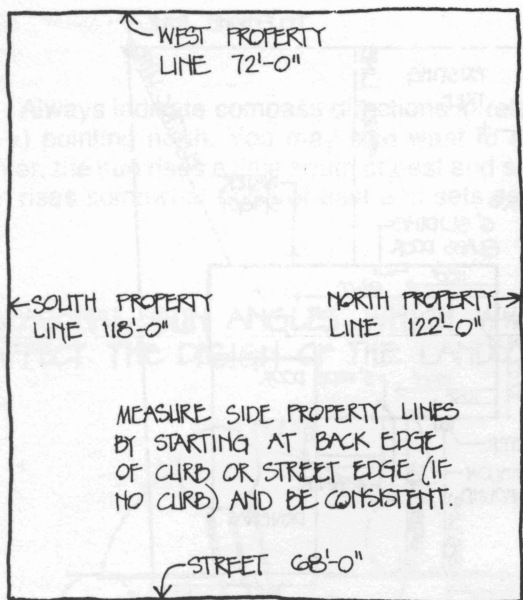 WEST PROPERTY
LINE 72'-0"
SOUTH PROPERTY
LINE 118'-0"
NORTH PROPERTY
LINE 122'-0"
MEASURE SIDE PROPERTY LINES
BY STARTING AT BACK EDGE
OF CURB OR STREET EDGE (IF
NO CURB) AND BE CONSISTENT
STREET 68'-0"